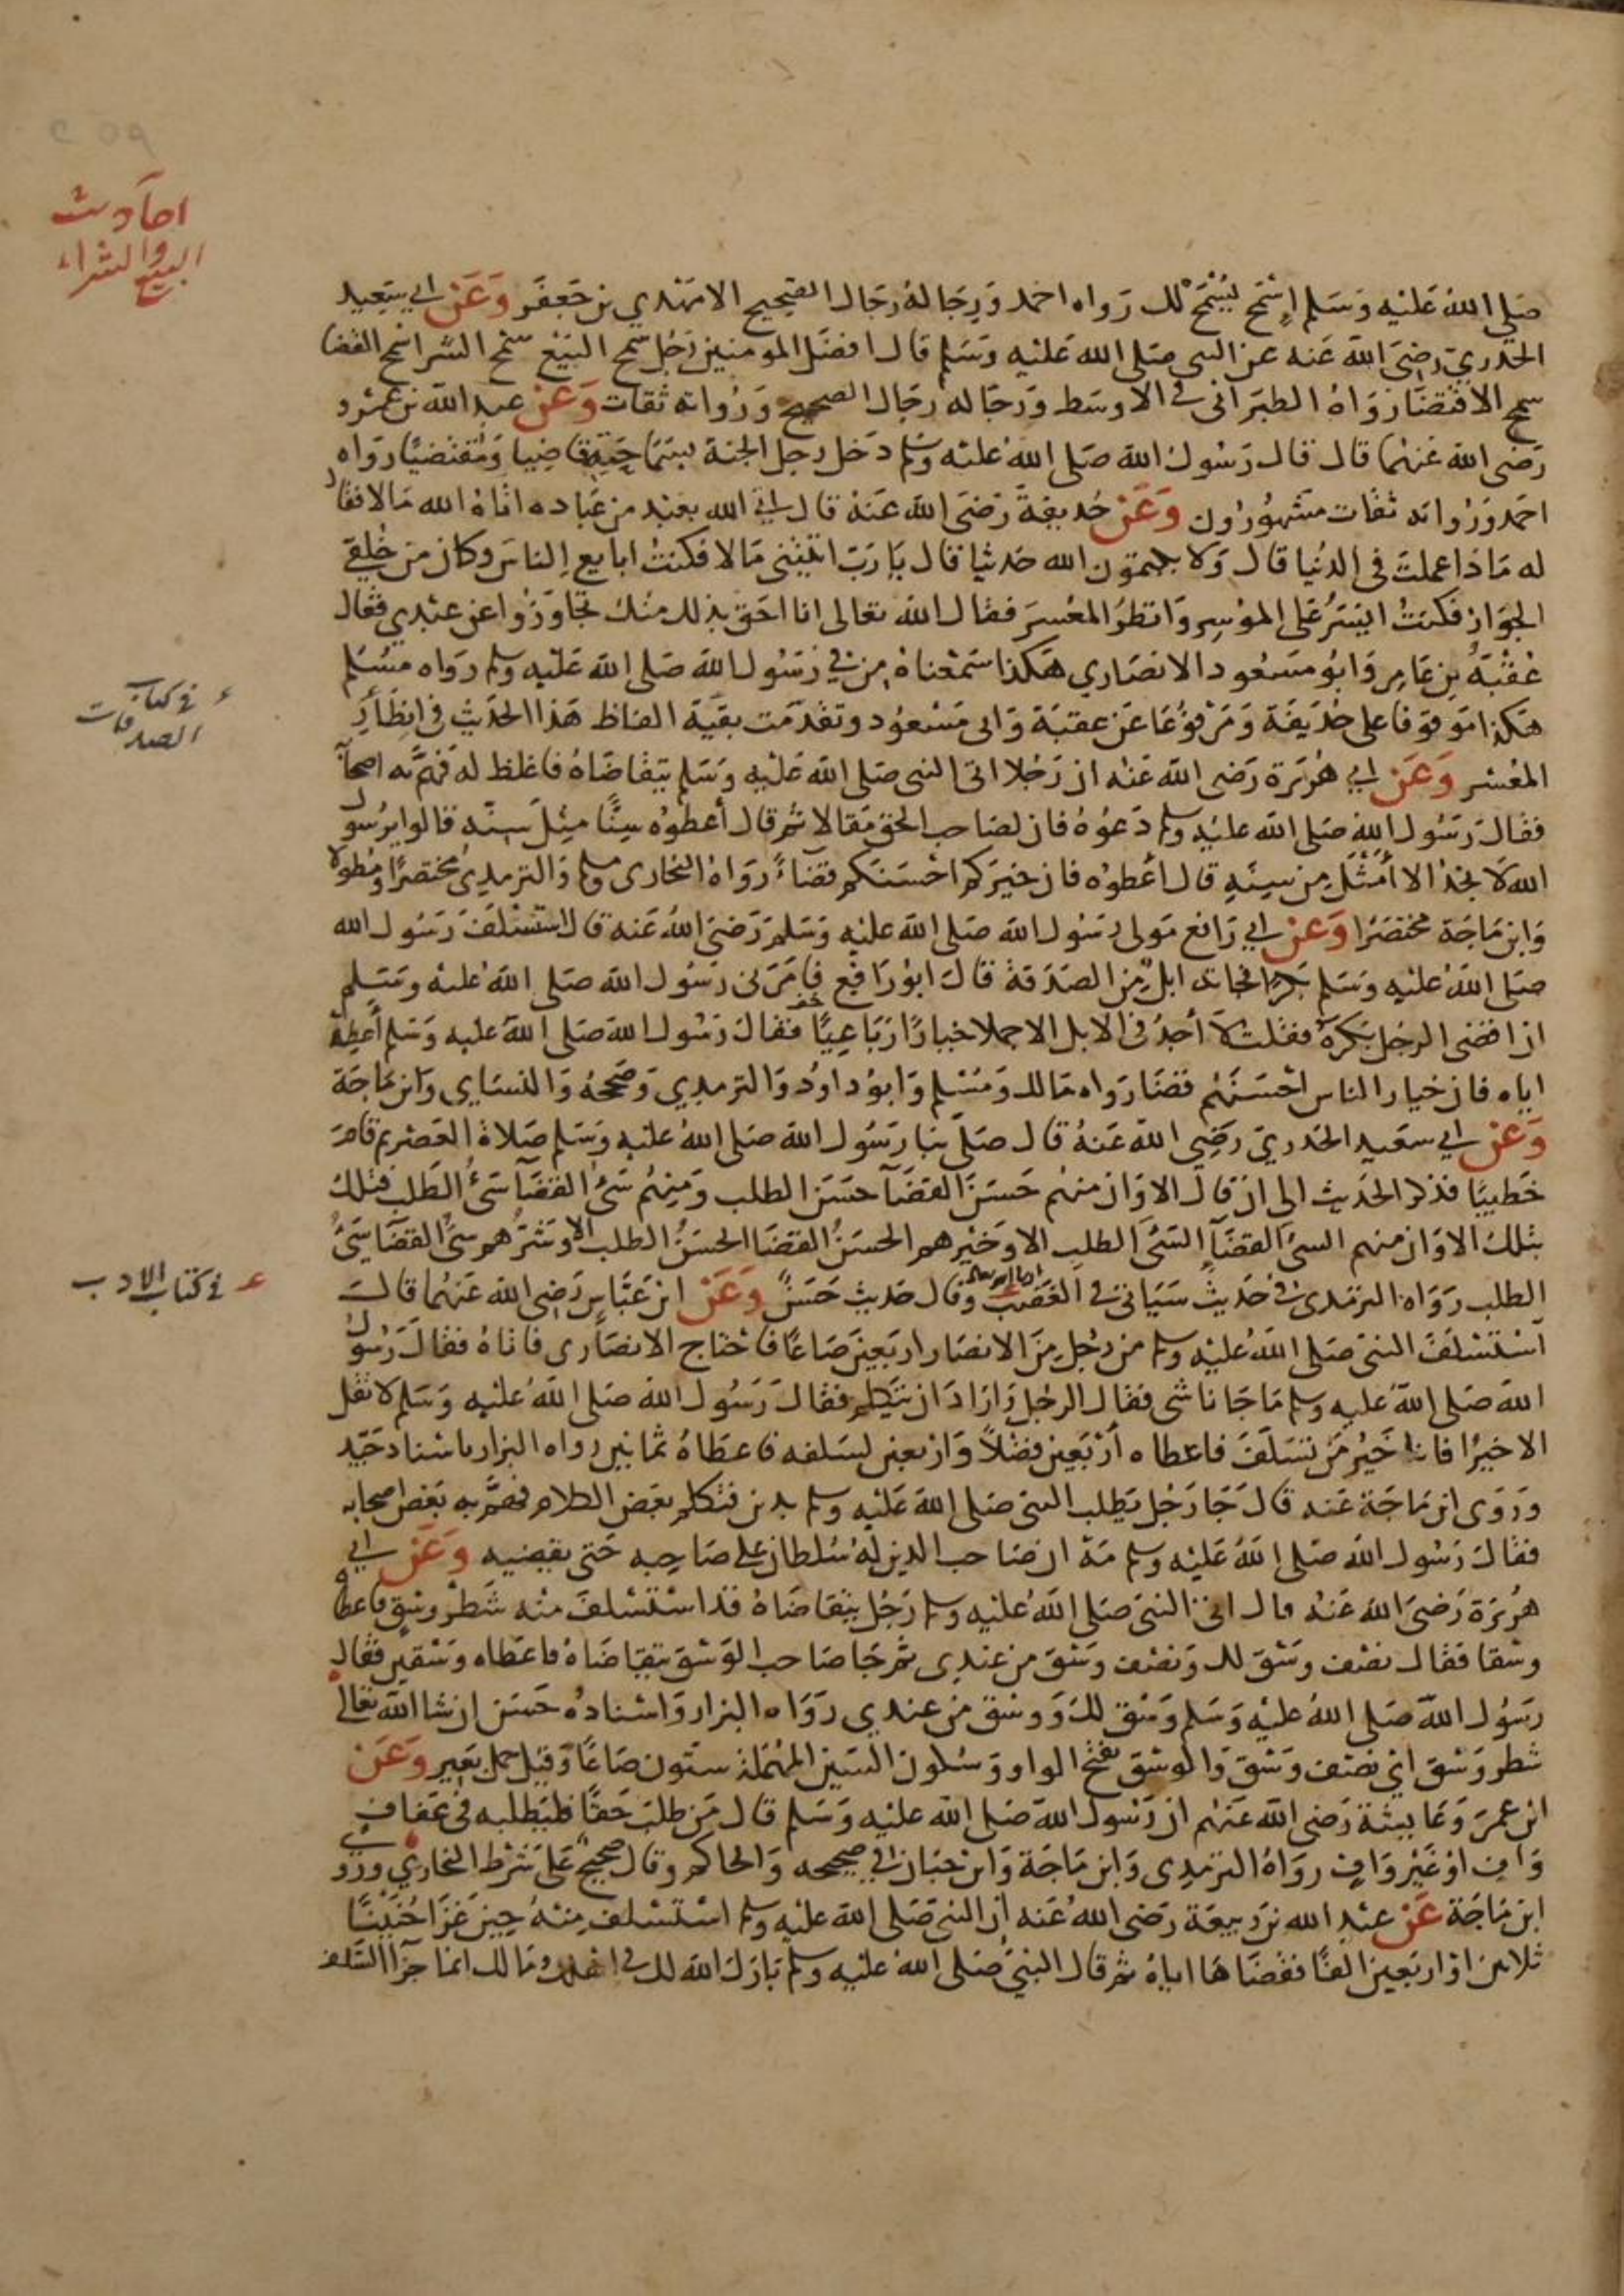 احاديث
البيع والشراء
صَلى اللهُ عَليْهِ وَسَلم اِسْمَح يُسْمَحْ لك رَواه احمد وَرِجَاله رجَال الصّحِيح الا مَهْدي بن جَعفَر وَعَنْ ابي سَعِيد
الخدري رضِىَ اللهُ عَنه عن النبى صَلى الله عَليْه وَسَلم قال افضَل المومنين رَجُل سَمح البَيْع سَمْح الشرا سَمْح القضا
سمح الاقتضَا رَوَاهُ الطبَرَانى فى الاوسَط وَرجَاله رجَال الصحيح وَرُواته ثقات وَعَنْ عبد الله بن عَمْرو
رَضى الله عَنهما قال قال رَسُول الله صَلى اللهُ عَليه وسلم دَخل رجل الجنة بسَمَاحَتِه قاضِيا وَمُقتضيًا رَوَاه
احمَد وَرُواته ثقات مَشهُورُون وَعَنْ حُذيفة رَضىَ الله عَنهُ قال اتى الله بعَبْد من عبَاده اتاهُ الله مَالا فقال
له مَاذا عملتَ فى الدُنيا قال وَلا يكتمون الله حَديثا قال يَا رَبّ اتيتني مَالا فكنتُ ابايع الناسَ وكان من خُلقى
الجَوَاز فكنتُ ايَسّرُ على المُوسِر وَانظرُ المعْسِرَ فقال الله تعالى انا احَق بذلك منكَ تجَاوَزوا عن عبْدي فقال
عُقبَةُ بن عَامِر وَابُو مسَعُود الانصَاري هَكذا سَمْعناهُ مِن فى رَسُول الله صَلى الله عَليْه وسلم رَواه مسُلم
هَكذا مَوقوفا على حُذيفَة وَمَرْفوعًا عَن عقبَة وَابى مَسْعُود وتقدّمت بقيَة الفاظ هَذا الحَدِيث فى انظار
المعُسر وَعَنْ ابي هُرَيرَة رَضى الله عَنْه ان رَجُلا اتى النبى صَلى الله عَليْهِ وَسَلم يتقاضَاهُ فاغلظ له فهَمّ به اصحا
فقال رَسُول الله صَلى الله عليْه وسلم دَعُوهُ فان لصَاحب الحَق مقالا ثم قال أعطُوه سِنًّا مِثْلَ سِنّه قالوا يرسُول
الله لا نجدُ الا أمْثلَ مِن سِنِهِ قال أعْطُوه فان خيرَكم احْسَنكم قضَاءً رَوَاه البخارى وسلم وَالترمِذىُّ مختصرًا ومطولا
وَابن مَاجَة مختصَرًا وَعَنْ ابي رَافع مَولى رَسُول الله صَلى الله عليْه وَسَلم رَضىَ اللهُ عَنه قال اسْتسْلفَ رَسُول الله
صَلى اللهُ عليْه وَسَلم بَكرًا فجَاءت ابلٌ مِن الصَدَقة قال ابُو رَافع فامَرَنى رَسُول الله صَلى اللهُ عليه وَسَلم
ان اقضىَ الرجُل بَكرهُ فقلت لا أجدُ فى الابل الا جملا خيارًا رَبَاعِيًا فقال رَسُول الله صَلى اللهُ عليه وَسَلم أعطِهِ
اياه فان خيار الناس احْسَنَهُم قضَا رَواه مَالك وَمُسْلم وَابوُ داوُد وَالترمذي وَصَححهُ وَالنسَاي وَابن مَاجَة
وَعَنْ ابي سعَيد الخدريّ رَضِي اللهُ عَنهُ قال صَلى بنا رَسُول الله صَلى اللهُ عليْه وَسَلم صَلاة العَصْر ثم قامَ
خَطيبًا فذكر الحَديث الى ان قال الا وَان منهُم حَسَنَ القضَآ حسَنَ الطلب وَمِنهُم سَىّ القضآ سَىّ الطَلب فتلك
بتلك الا وَان منهم السىّ القضَآ السّىّ الطلب الا وَخيْرهم الحسَنُ القضَا الحسَنُ الطلب الا وَشرُّهم سىّ القضَا سَىّ
الطلب رَوَاه الترمذى فى حَديثٍ سَيَاتى فى الغضَب وَقال حَديث حَسَنٌ وَعَنْ ابن عَبَّاس رَضى الله عَنهُما قال
اسْتسْلفَ النبىّ صَلى اللهُ عليْه وسلم من رَجُل مِنَ الانصَار اربَعينَ صَاعًا فاحْتاج الانصَارى فاتاهُ فقال رَسُول
الله صَلى اللهُ عليه وسلم مَا جَانا شى فقال الرجُل وَارَادَ ان يتكلم فقال رَسُول الله صَلى اللهُ عليْه وَسَلم لا تقل
الا خيرًا فانا خَيْر من تسَلفَ فاعطاه أرْبَعين فضْلاً وَاربعين لسَلفه فاعطَاهُ ثمانين رواه البزار باسْناد جَيّد
وَرَوَى ابن مَاجَة عَنه قال جَا رَجُل يَطلب النبى صَلى الله عَليْه وسلم بدين فتكلم بعَض الكلام فهَمَّ به بَعض اصحابه
فقال رَسُول الله صَلى اللهُ عَليْه وسلم مَهْ ان صَاحب الدين لهُ سُلطان على صَاحِبه حَتى يقضيه وَعَنْ ابي
هُرَيرَة رَضىَ الله عَنهُ قال اتى النبىَ صَلى اللهُ عَليْه وسلم رَجُل يتقاضَاهُ قد اسْتسْلفَ منه شَطْر وسْق فاعطاه
وسْقا فقال نصْف وَسْق لك وَنصْف وسْق من عندى ثم جَا صَاحب الوَسْق يتقاضَاهُ فاعَطاه وَسْقين فقال
رَسُول الله صَلى اللهُ عليْه وَسَلم وَسْق لكَ وَوسْق مِن عندي رَوَاه البزار وَاسْنادُه حَسَن ان شا الله تعَالى
شطر وَسْق اي نصْف وَسْق وَالوسْق بفَتح الواو وَسُكون السّين المهْملة ستّون صَاعًا وَقيل حمل بَعير وَعَنْ
ابن عمرَ وَعَايشة رَضى الله عَنهُم ان رَسُول الله صَلى الله عليْه وَسَلم قال مَن طلبَ حَقا فليَطلبه فى عَفاف
وَافٍ اوْ غَيْر وَافٍ روَاهُ الترمِذى وَابن مَاجَة وَابن حبَان في صحيحه وَالحاكم وَقال صحيح عَلى شرْط البخاري وَرَوَى
ابن مَاجَة عَنْ عبْد الله بن رَبيعَة رَضى اللهُ عَنه ان النبىَ صَلى الله عليْه وسلم اسْتسْلف مِنهُ حِينَ غَزَا حُنَيْنًا
ثلاثين اوْ اربَعين الفًا فقضَاهَا اياهُ ثم قال النبىُّ صَلى اللهُ عَليْه وسلم بَارَكَ الله لك فى اهلك وَمَالك انما جزآ السَّلف
ء فى كتاب
الصدقات
ء فى كتاب الادب